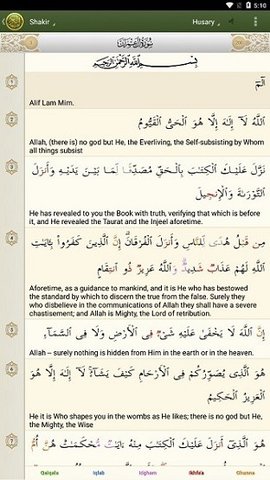 5:10
Shakir
Husary
سُورَةُ آلِ عِمْرَانَ
بِسْمِ ٱللَّهِ ٱلرَّحْمَٰنِ ٱلرَّحِيمِ
1
الٓمٓ
Alif Lam Mim.
2
ٱللَّهُ لَآ إِلَٰهَ إِلَّا هُوَ ٱلْحَىُّ ٱلْقَيُّومُ
Allah, (there is) no god but He, the Everliving, the Self-subsisting by Whom
all things subsist
3
نَزَّلَ عَلَيْكَ ٱلْكِتَٰبَ بِٱلْحَقِّ مُصَدِّقًا لِّمَا بَيْنَ يَدَيْهِ وَأَنزَلَ
ٱلتَّوْرَىٰةَ وَٱلْإِنجِيلَ
He has revealed to you the Book with truth, verifying that which is before
it, and He revealed the Taurat and the Injeel aforetime.
4
مِن قَبْلُ هُدًى لِّلنَّاسِ وَأَنزَلَ ٱلْفُرْقَانَ إِنَّ ٱلَّذِينَ كَفَرُوا۟ بِـَٔايَٰتِ
ٱللَّهِ لَهُمْ عَذَابٌ شَدِيدٌ وَٱللَّهُ عَزِيزٌ ذُو ٱنتِقَامٍ
Aforetime, as a guidance to mankind, and it is He who has bestowed
the standard by which to discern the true from the false. Surely they
who disbelieve in the communications of Allah they shall have a severe
chastisement; and Allah is Mighty, the Lord of retribution.
5
إِنَّ ٱللَّهَ لَا يَخْفَىٰ عَلَيْهِ شَىْءٌ فِى ٱلْأَرْضِ وَلَا فِى ٱلسَّمَآءِ
Allah -- surely nothing is hidden from Him in the earth or in the heaven.
6
هُوَ ٱلَّذِى يُصَوِّرُكُمْ فِى ٱلْأَرْحَامِ كَيْفَ يَشَآءُ لَآ إِلَٰهَ إِلَّا هُوَ
ٱلْعَزِيزُ ٱلْحَكِيمُ
He it is Who shapes you in the wombs as He likes; there is no god but He,
the Mighty, the Wise
7
هُوَ ٱلَّذِىٓ أَنزَلَ عَلَيْكَ ٱلْكِتَٰبَ مِنْهُ ءَايَٰتٌ مُّحْكَمَٰتٌ هُنَّ أُمُّ
Qalqala Iqlab Idgham Ikhfa'a Ghunna